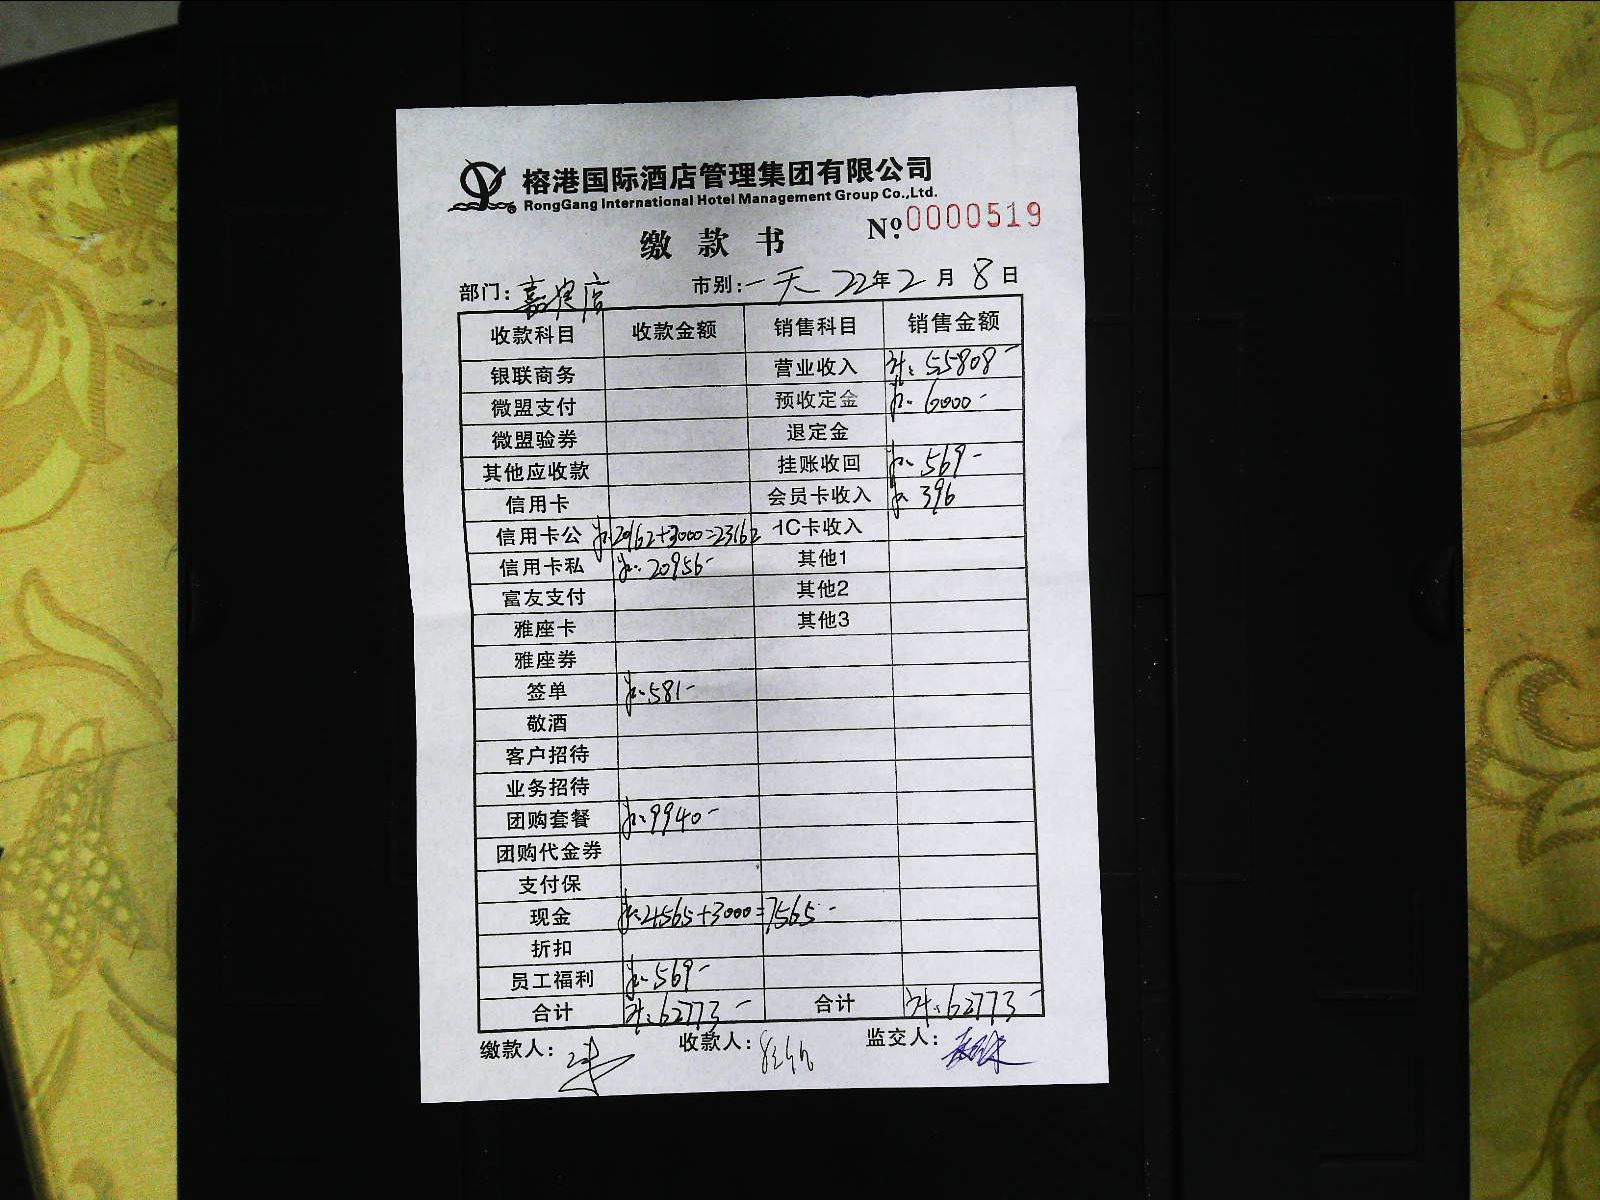 榕港国际酒店管理集团有限公司
RongGang International Hotel Management Group Co.,Ltd.
№ 0000519
缴款书
部门：嘉宾店 市别：一天 22年2月8日
收款科目 收款金额 销售科目 销售金额
银联商务 营业收入 55808-
微盟支付 预收定金 6000-
微盟验券 退定金
其他应收款 挂账收回 569-
信用卡 会员卡收入 396
信用卡公 20162+3000=23162 IC卡收入
信用卡私 20956- 其他1
富友支付 其他2
雅座卡 其他3
雅座券
签单 581-
敬酒
客户招待
业务招待
团购套餐 9940-
团购代金券
支付保
现金 4565+3000=7565-
折扣
员工福利 569-
合计 62773- 合计 62773-
缴款人： 收款人： 监交人：